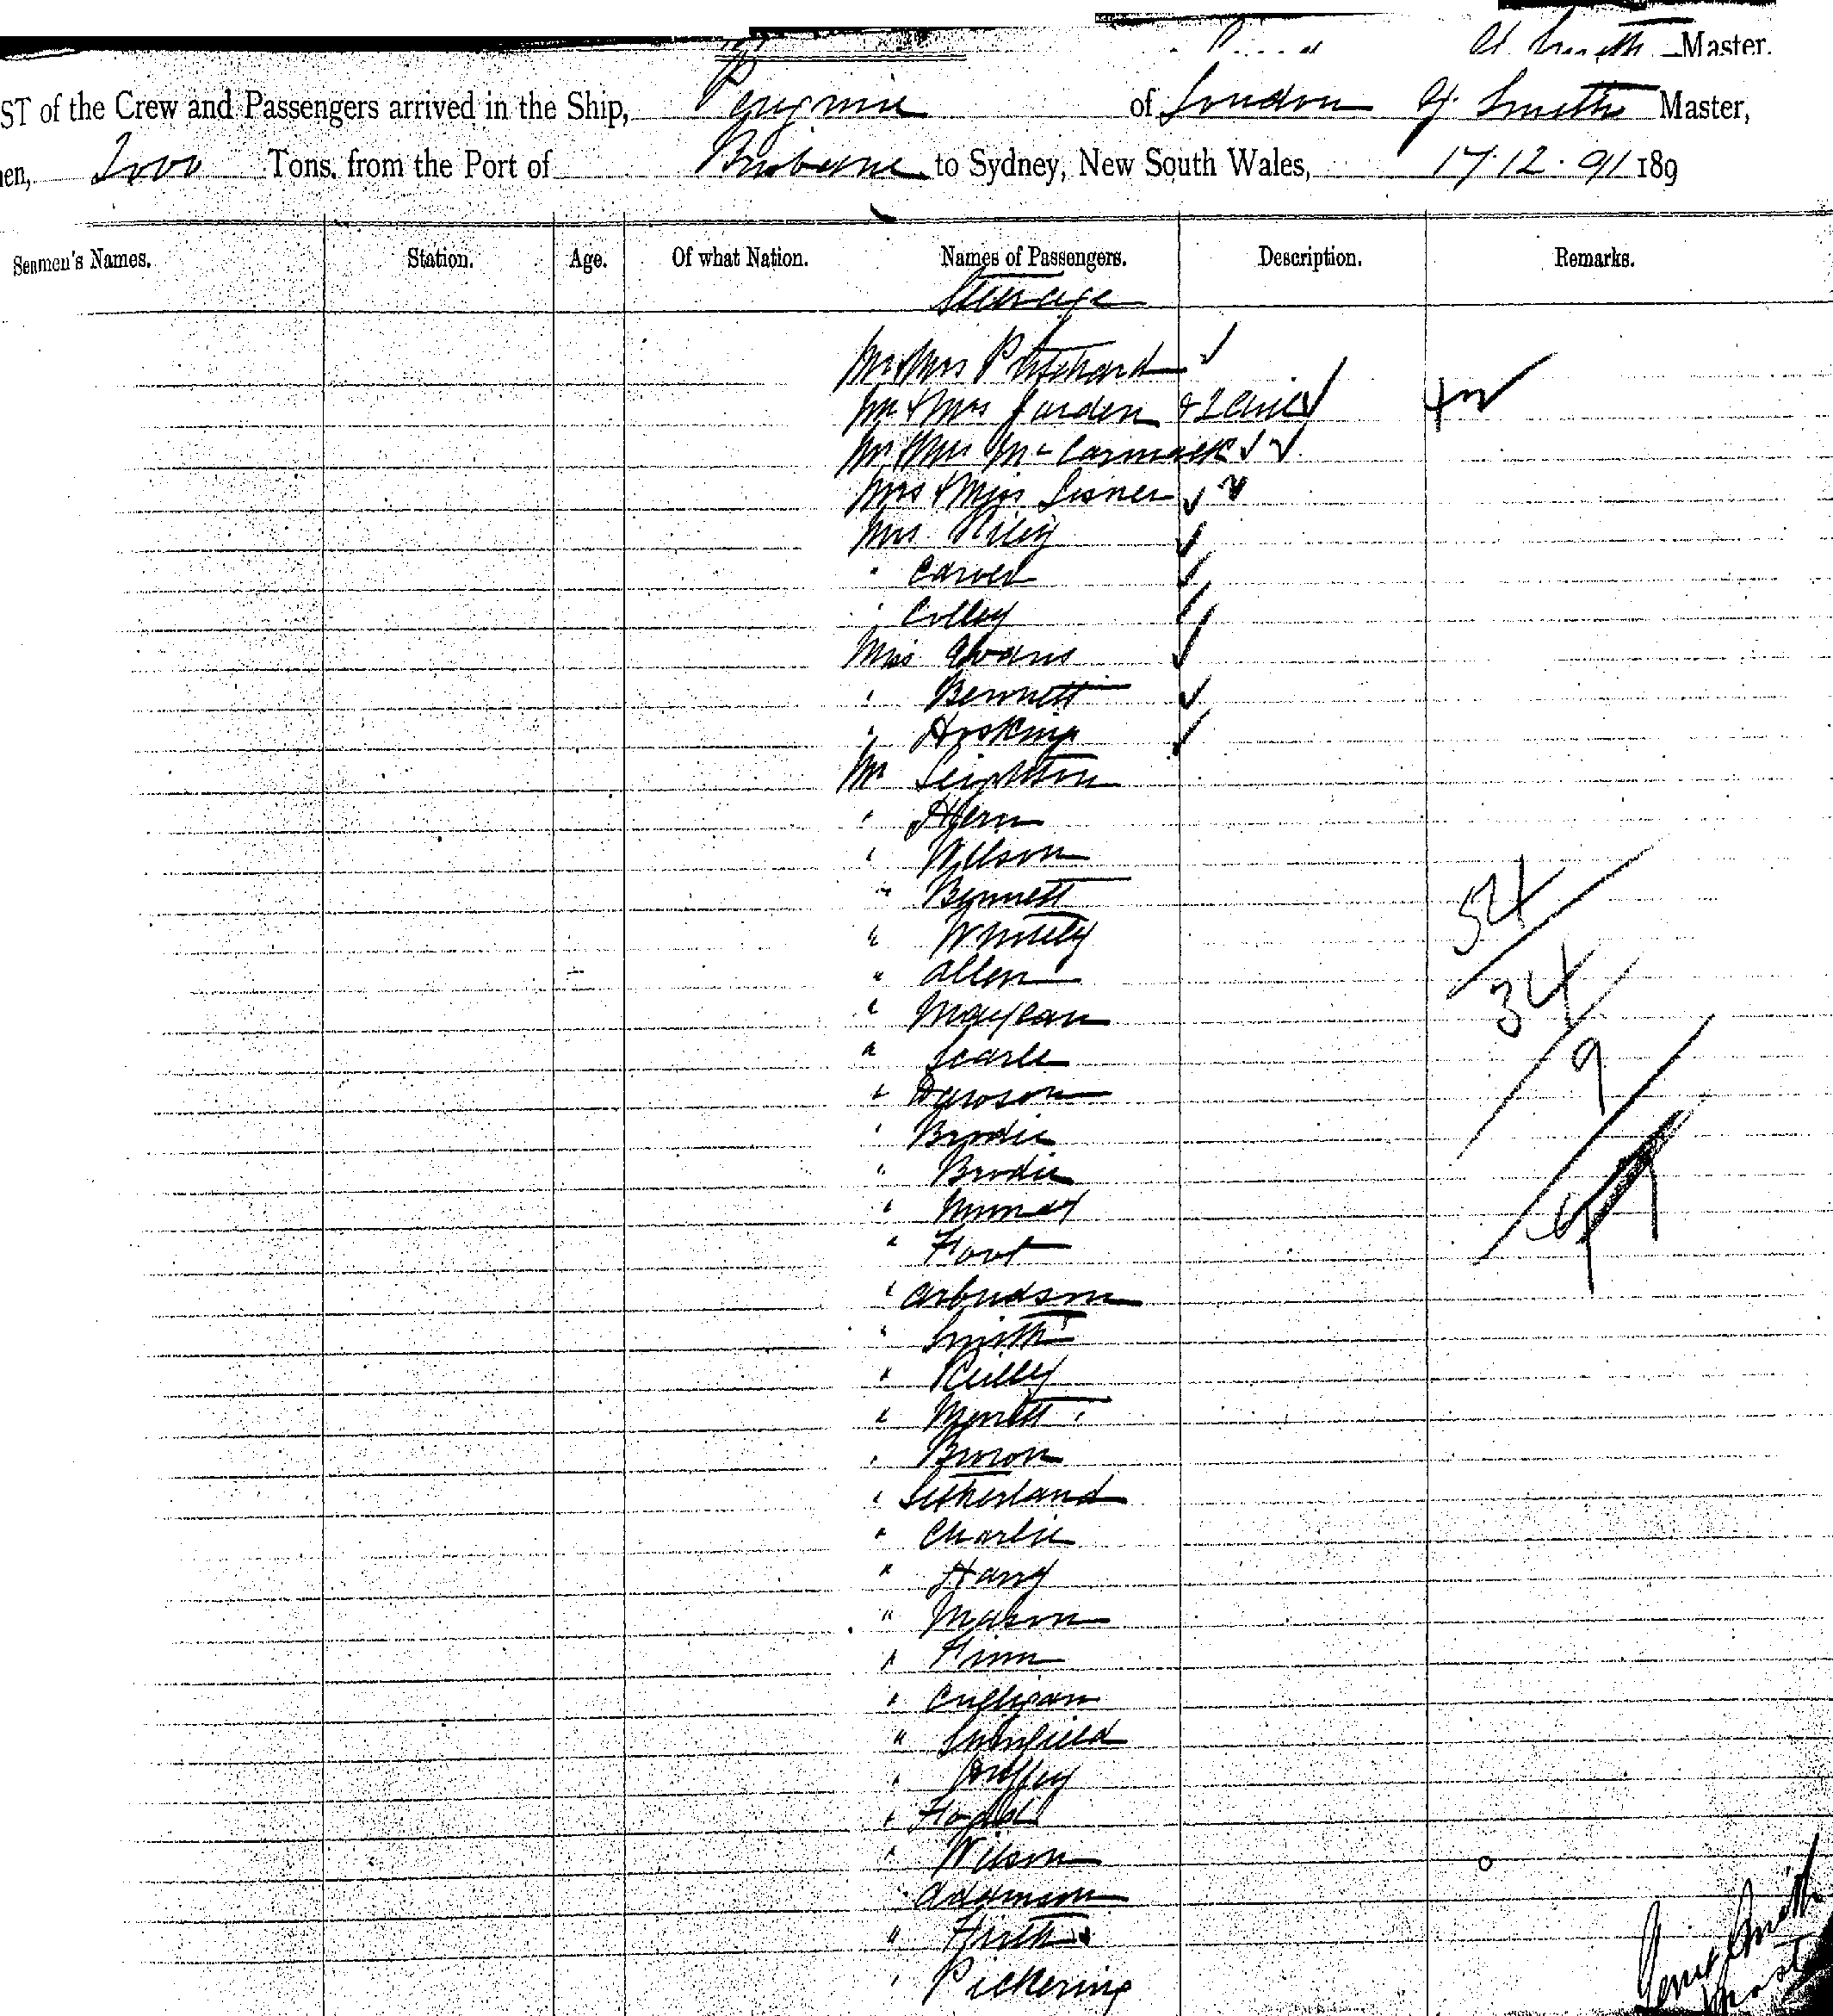 Smith Master.
ST of the Crew and Passengers arrived in the Ship, of London Smith Master,
en, 2000 Tons, from the Port of Brisbane to Sydney, New South Wales, 17.12.91 189
Seamen's Names. Station. Age. Of what Nation. Names of Passengers. Description. Remarks.
Steerage
Mr & Mrs Pritchard ✓
Mr & Mrs Jarden & 2 ✓
Mr & Mrs McCarmack ✓ ✓
Mrs & Miss Lesner ✓
Mrs Riley ✓
" Carver ✓
" Colley ✓
Miss Evans ✓
" Bennett ✓
" Hosking ✓
Mr Leighton
" Hern
" Wilson
" Bennett
" Whitely
" Allen
"
" Searle
" Dawson
" Brodie
" Brodie
"
" Foot
"
" Smith
" Reilly
" Merrett
" Brown
" Sutherland
" Charlie
" Hang
" Mason
" Finn
" Culligan
"
" Duffey
"
" Wilson
" Adamson
" Firth
" Pickering
54
34
9
Smith